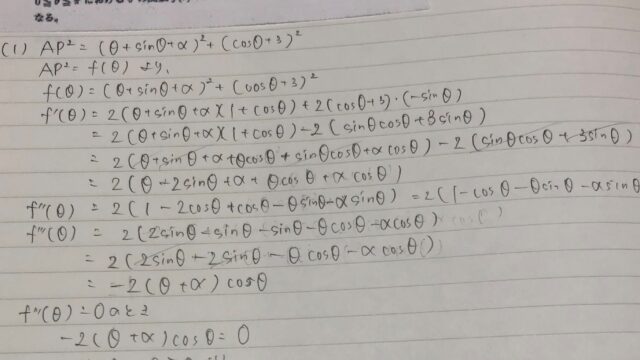 なる。
(1) AP² = (θ+sinθ+α)²+(cosθ+3)²
AP² = f(θ) より、
f(θ) = (θ+sinθ+α)²+(cosθ+3)²
f'(θ) = 2(θ+sinθ+α)(1+cosθ)+2(cosθ+3)·(-sinθ)
= 2(θ+sinθ+α)(1+cosθ)-2(sinθcosθ+3sinθ)
= 2(θ+sinθ+α+θcosθ+sinθcosθ+αcosθ)-2(sinθcosθ+3sinθ)
= 2(θ-2sinθ+α+θcosθ+αcosθ)
f''(θ) = 2(1-2cosθ+cosθ-θsinθ-αsinθ) = 2(1-cosθ-θsinθ-αsinθ
f'''(θ) = 2(2sinθ-sinθ-sinθ-θcosθ-αcosθ)
= 2(2sinθ-2sinθ-θcosθ-αcosθ)
= -2(θ+α)cosθ
f'''(θ)=0のとき
-2(θ+α)cosθ=0